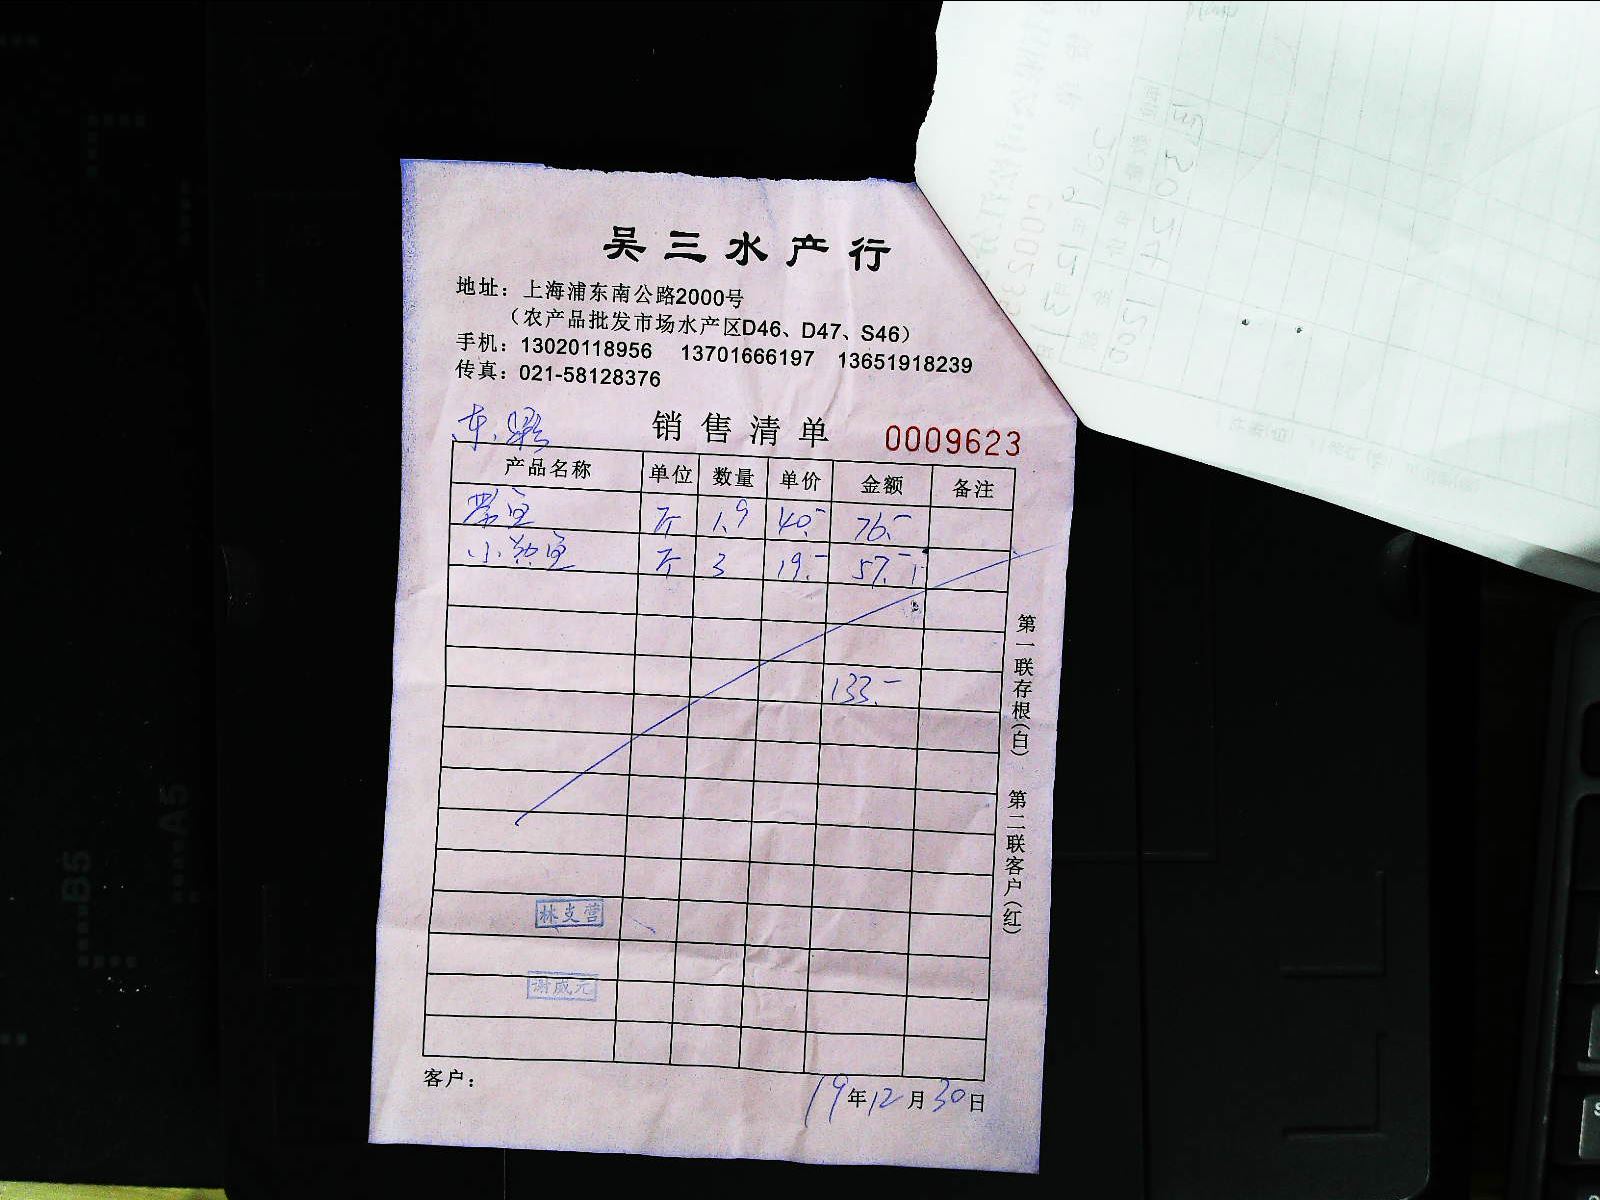 吴三水产行
地址：上海浦东南公路2000号
（农产品批发市场水产区D46、D47、S46）
手机：13020118956 13701666197 13651918239
传真：021-58128376
销售清单 0009623
产品名称 单位 数量 单价 金额 备注
带鱼 斤 1.9 40.- 76.-
小黄鱼 斤 3 19.- 57.-
133.-
第一联存根(白) 第二联客户(红)
林支营
谢成元
客户： 19年12月30日
B5
A5